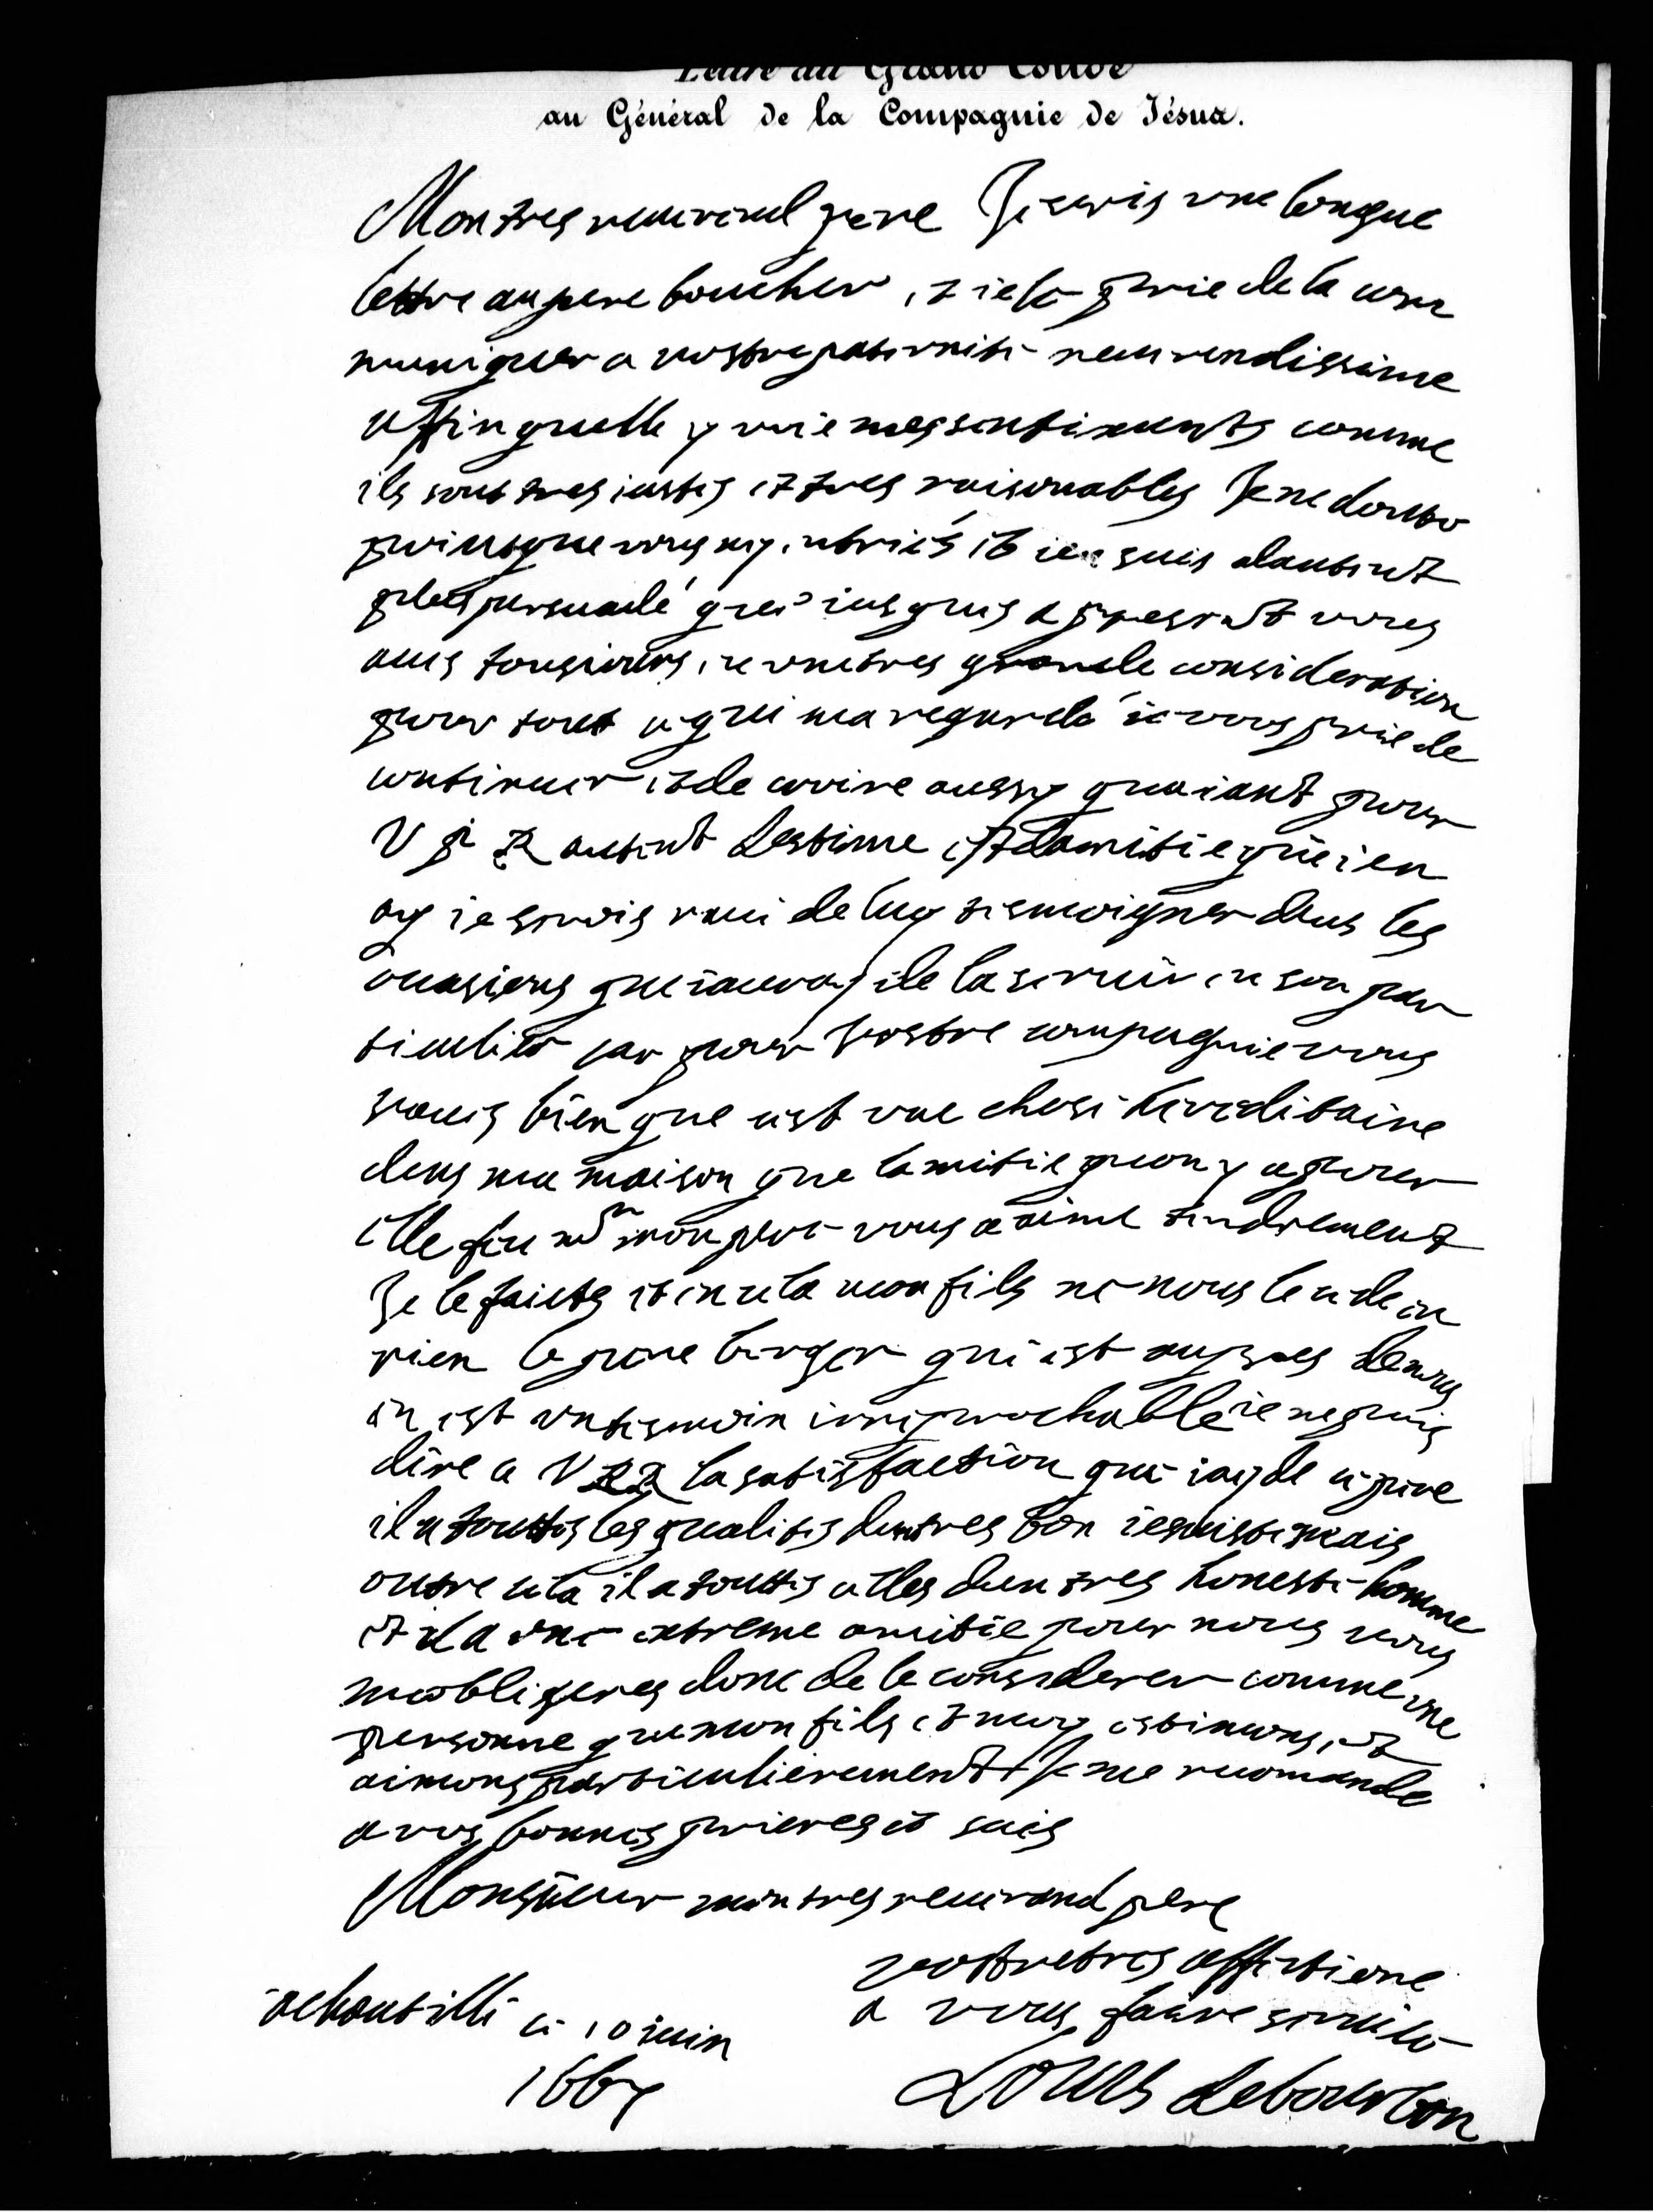 Lettre du Grand Condé
au Général de la Compagnie de Jésus.
Mon tres reuerend pere Jescris vne longue
lettre au pere boucher, et ie le prie de la com
muniquer a vostre paternité reuerendissime
affin quelle y voie mes sentiments comme
ils sont tres iustes et tres raisonables Je ne doutte
point que vous ny entriés et ien suis dautent
plus persuadé que iusques a present vous
aues tousiours eu vne tres grande consideration
pour tout ce qui ma regardé ie vous prie de
continuer et de croire aussy quaiant pour
V P R autent destime et damitie que ien
ay ie serois raui de luy tesmoigner dans les
ocasions que iauray de la seruir en son par
ticulier car pour vostre compagnie vous
saues bien que cest vne chose hereditaire
dens ma maison que lamitie quon y a pour
elle feu mr mon pere vous a aimé tendrement
Je le faicts et en cela mon fils ne nous cede en
rien le pere berger qui est aupres de vous
en est vn tesmoin irreprochable ie ne puis
dire a V P R la satisfaction que iay de ce pere
il a touttes les qualites dun tres bon iesuiste mais
outre cela il a touttes celles dun tres honeste homme
et il a vne extreme amitie pour nous vous
mobligeres donc de le considerer comme vne
personne que mon fils et moy estimons, et
aimons particulierement Je me recomande
a vos bonnes prieres et suis
Monsieur mon tres reuerend pere
vostre tres affectioné
a vous faire seruice
Louis de bourbon
a chantilli ce 10 iuin